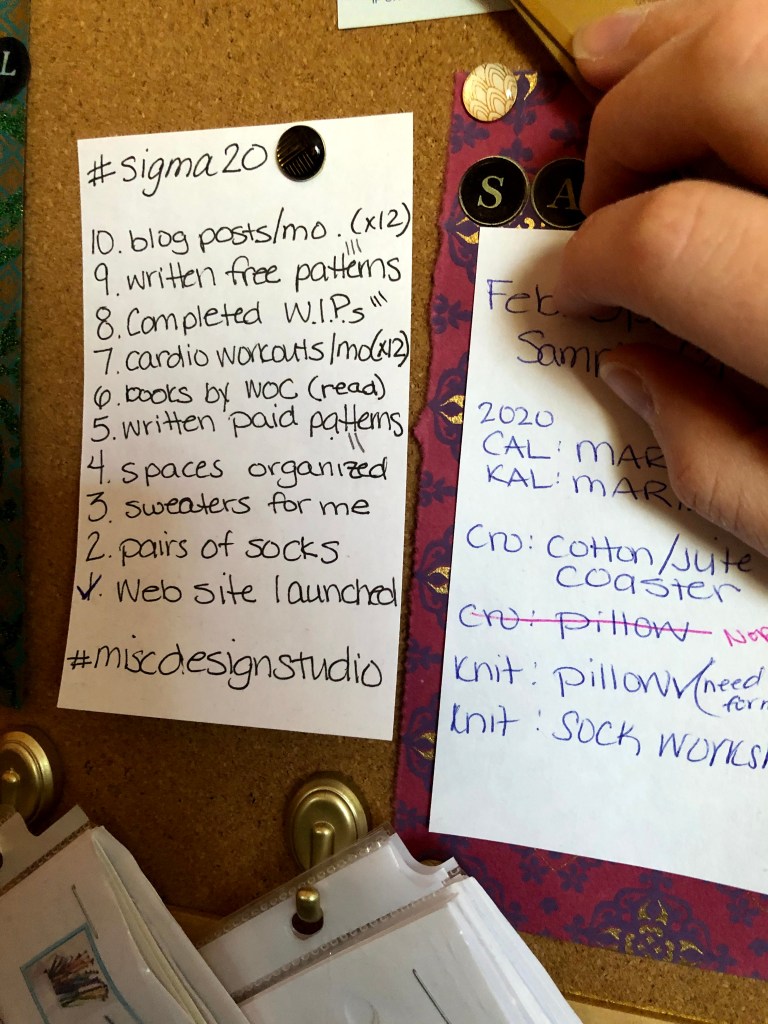 L
#sigma20
10. blog posts/mo. (x12)
9. written free patterns
8. Completed W.I.P.s
7. cardio workouts/mo(x12)
6. books by WOC (read)
5. written paid patterns
4. spaces organized
3. sweaters for me
2. pairs of socks
✓. Web site launched
#miscdesignstudio
S A
Feb.
2020
CAL:
KAL:
Cro: Cotton/Jute
Coaster
Cro: pillow
Knit: pillow (need
Knit: Sock